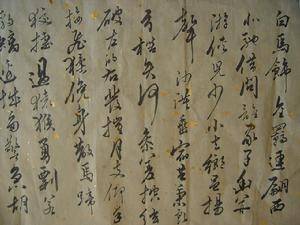 白馬飾金羈連翩西
北馳借問誰家子幽并
游俠兒少小去鄉邑揚
聲沙漠垂宿昔秉良
弓楛矢何參差控弦
破左的右發摧月支仰手
接飛猱俯身散馬蹄
狡捷過猿猴勇剽若
豹螭邊城多警急胡